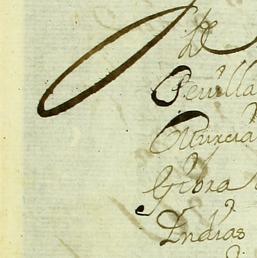 De
Seuilla
Murcia
Gibra
Indias